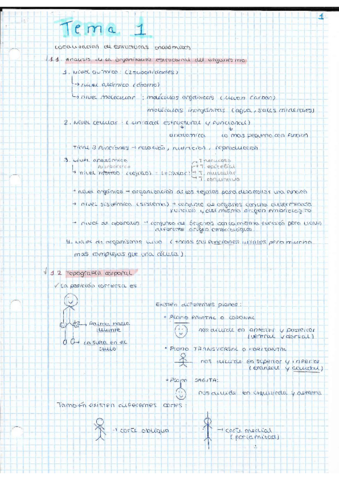 1
Tema 1
Localización de estructuras anatómicas
1.1 Análisis de la organización estructural del organismo
1. Nivel químico
→ Nivel atómico (átomo)
→ Nivel molecular: moléculas orgánicas (llevan carbono)
moléculas inorgánicas (agua, sales minerales)
2. Nivel celular (unidad estructural y funcional)
anatómica lo más pequeño con función
3 funciones → nutrición, reproducción
3. Nivel anatómico
T. nervioso
T. epitelial
→ Nivel tisular T. muscular
T. conectivo
→ Nivel orgánico → organización de los tejidos para desarrollar una función
→ Nivel sistémico (sistema) → conjunto de órganos con una determinada
función y del mismo origen embriológico
→ Nivel de aparatos → conjunto de órganos con la misma función pero
diferente origen embriológico
4. Nivel de organismo vivo (tiene sus funciones vitales pero mucho
más complejas que una célula)
1.2 Topografía corporal
La posición correcta es
Existen diferentes planos:
• Plano FRONTAL O CORONAL
nos divide en anterior y posterior
(ventral y dorsal)
Palmas hacia
delante
los pies en el
suelo
• Plano TRANSVERSAL O HORIZONTAL
nos divide en superior y inferior
(craneal y caudal)
• Plano SAGITAL
nos divide en izquierda y derecha
También existen diferentes cortes:
→ corte oblicuo
→ corte medial